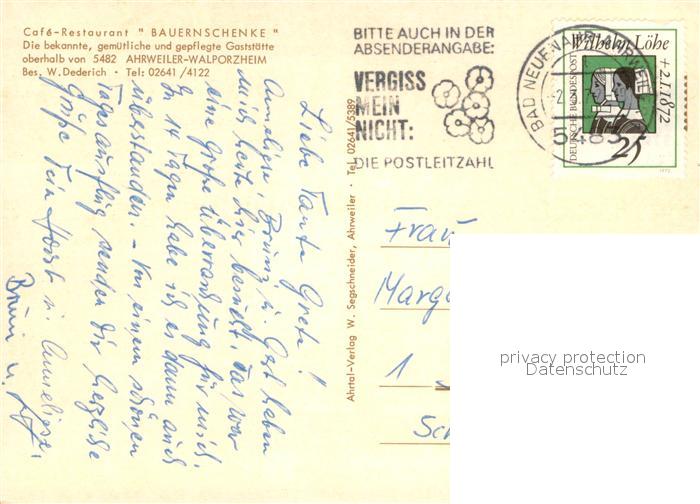 Café-Restaurant " BAUERNSCHENKE "
Die bekannte, gemütliche und gepflegte Gaststätte
oberhalb von 5482 AHRWEILER-WALPORZHEIM
Bes. W. Dederich · Tel: 02641 /4122
BITTE AUCH IN DER
ABSENDERANGABE:
VERGISS
MEIN
NICHT:
DIE POSTLEITZAHL
BAD NEUENAHR-AHRWEILER
5483
Wilhelm Löhe
+2.1.1872
DEUTSCHE BUNDESPOST
25
1972
Liebe Tante Grete!
Anneliese, Bruni u. Gert haben
mich heute hier besucht, das war
eine große Überraschung für mich.
In 14 Tagen habe ich es dann auch
überstanden. – Von einem schönen
Tagesausflug senden dir herzliche
Grüße Dein Horst u. Anneliese,
Bruni u.
Ahrtal-Verlag W. Segschneider, Ahrweiler · Tel. 02641/5389
Frau
Marg
1
Sch
privacy protection
Datenschutz